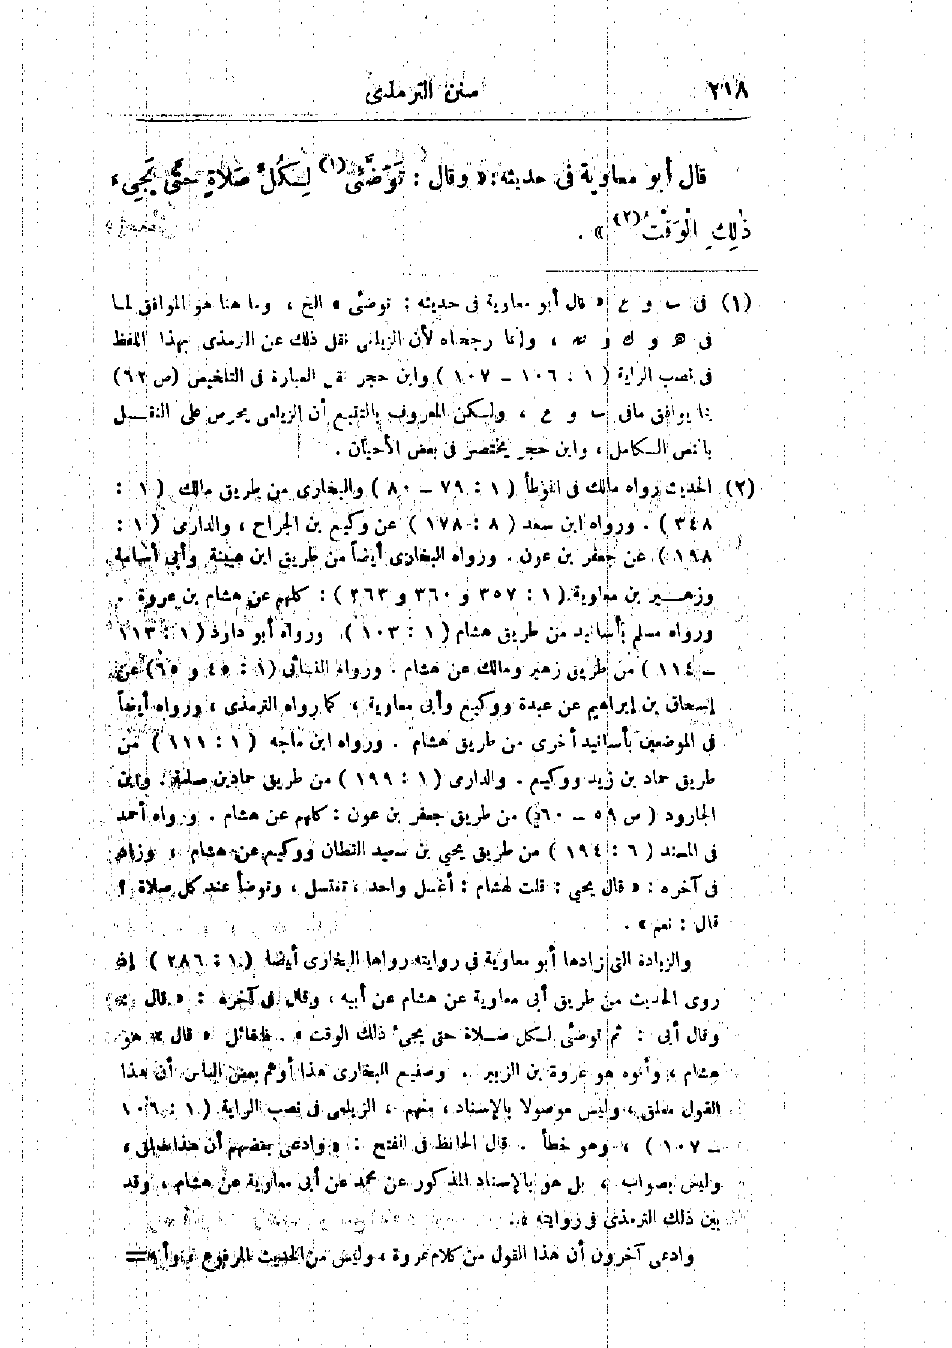 ٢١٨
سنن الترمذى
قال أبو معاوية فى حديثه: « وقال : تَوَضَّئِى(١) لِكُلِّ صَلَاةٍ حَتَّى يَجِىءَ
ذٰلِكِ الْوَقْتُ(٢) » .
(١) فى ب و ع « قال أبو معاوية فى حديثه : توضئى » الخ ، وما هنا هو الموافق لما
فى هـ و ك و ، وإنما رجحناه لأن الزيلعى نقل ذلك عن الترمذى بهذا اللفظ
فى نصب الراية ( ١ : ١٠٦ ــ ١٠٧ ) وابن حجر نقل العبارة فى التلخيص (ص ٦٢)
بما يوافق مافى ب و ع ، ولكن المعروف بالتتبع أن الزيلعى يحرص على النقــل
بالنص الكامل ، وابن حجر يختصر فى بعض الأحيان .
(٢) الحديث رواه مالك فى الموطأ ( ١ : ٧٩ ــ ٨٠ ) والبخارى من طريق مالك ( ١ :
٣٤٨ ) . ورواه ابن سعد ( ٨ : ١٧٨ ) عن وكيع بن الجراح ، والدارى ( ١ :
١٩٨ ) عن جعفر بن عون . ورواه البخارى أيضاً من طريق ابن عيينة وأبى أسامة
وزهــير بن معاوية ( ١ : ٣٥٧ و ٣٦٠ و ٣٦٣ ) : كلهم عن هشام بن عروة .
ورواه مسلم بأسانيد من طريق هشام ( ١ : ١٠٣ ) . ورواه أبو داود ( ١ : ١١٣
ــ ١١٤ ) من طريق زهير ومالك عن هشام . ورواه النسائى (١ : ٤٥ و ٦٥) عن
إسحاق بن إبراهيم عن عبدة ووكيع وأبى معاوية ، كما رواه الترمذى ، ورواه أيضاً
فى الموضعين بأسانيد أخرى من طريق هشام . ورواه ابن ماجه ( ١ : ١١١ ) من
طريق حماد بن زيد ووكيع . والدارى ( ١ : ١٩٩ ) من طريق حمادبن سلمة . وابن
الجارود ( ص ٥٩ ــ ٦٠ ) من طريق جعفر بن عون : كلهم عن هشام . ورواه أحمد
فى المسند ( ٦ : ١٩٤ ) من طريق يحيى بن سعيد القطان ووكيع عن هشام ، وزاد
فى آخره : « قال يحيى : قلت لهشام : أغسل واحد ، تغتسل ، وتوضأ عند كل صلاة ؟
قال : نعم » .
والزيادة التى زادها أبو معاوية فى روايته رواها البخارى أيضا ( ١ : ٢٨٦ ) إذ
روى الحديث من طريق أبى معاوية عن هشام عن أبيه ، وقال فى آخره : « قال :
وقال أبى : ثم توضئى لكل صــلاة حتى يجئ ذلك الوقت » . فالقائل « قال » هو
هشام ، وأبوه هو عروة بن الزبير . وصنيع البخارى هذا أوهم بعض الناس أن هذا
القول معلق ، وليس موصولا بالإسناد ، منهم ، الزيلعى فى نصب الراية ( ١ : ١٠٦
ــ ١٠٧ ) ، وهو خطأ . قال الحافظ فى الفتح : « وادعى بعضهم أن هذا معلق ،
وليس بصواب ، بل هو بالإسناد المذكور عن محمد عن أبى معاوية عن هشام ، وقد
بين ذلك الترمذى فى روايته » .
وادعى آخرون أن هذا القول من كلام عروة ، وليس من الحديث المرفوع =